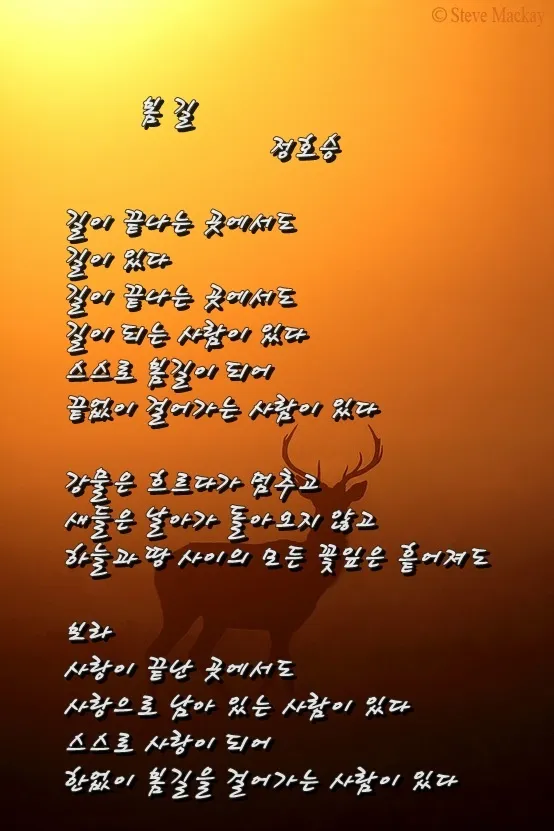 © Steve Mackay
봄 길
정호승
길이 끝나는 곳에서도
길이 있다
길이 끝나는 곳에서도
길이 되는 사람이 있다
스스로 봄길이 되어
끝없이 걸어가는 사람이 있다
강물은 흐르다가 멈추고
새들은 날아가 돌아오지 않고
하늘과 땅 사이의 모든 꽃잎은 흩어져도
보라
사랑이 끝난 곳에서도
사랑으로 남아 있는 사람이 있다
스스로 사랑이 되어
한없이 봄길을 걸어가는 사람이 있다